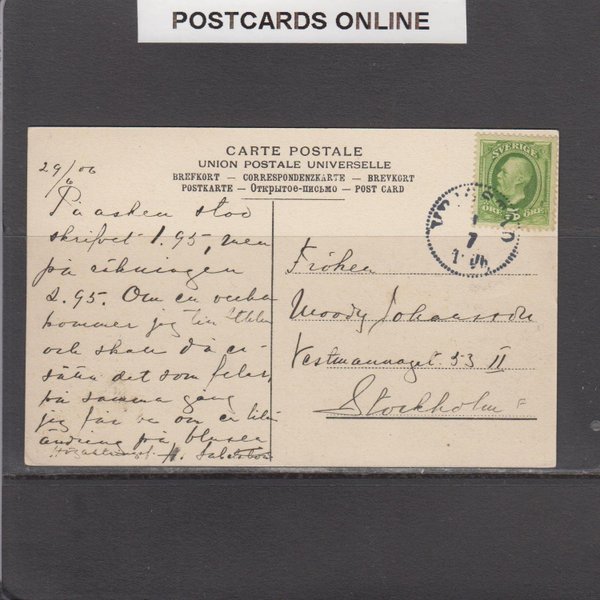 POSTCARDS ONLINE
CARTE POSTALE
UNION POSTALE UNIVERSELLE
BREFKORT — CORRESPONDENZKARTE — BREVKORT
POSTKARTE — Открытое-письмо — POST CARD
29/6 06
På asken stod
skrifvet 1.95, men
på räkningen
2.95. Om en vecka
kommer jag till
och skall då er-
sätta det som felas,
på samma gång
jag får en liten
ändring på blusen
SVERIGE
5 ÖRE
1
7
Fröken
Moody Johansson
Vestmannagat. 53 II
Stockholm